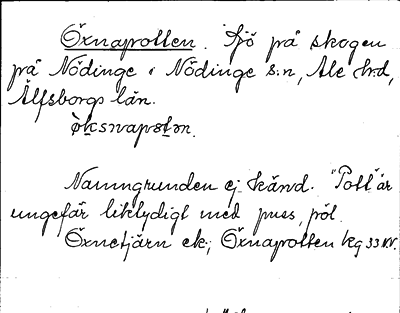 Öxnapotten. Sjö på skogen
på Nödinge i Nödinge s:n, Ale h:d,
Älfsborgs län.
Namngrunden ej känd. "Pott" är
ungefär liktydigt med puss, pöl.
Öxnetjärn ek.; Öxnapotten kg 33 NV.